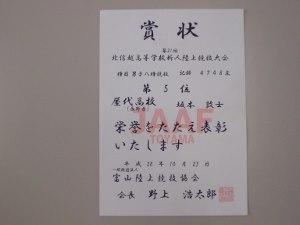 賞状
第21回
北信越高等学校新人陸上競技大会
種目 男子八種競技 記録 4748点
第5位
屋代高校 坂本 敦士
(長野県)
栄誉をたたえ表彰
いたします
JAAF
TOYAMA
平成28年10月23日
一般財団法人
富山陸上競技協会
会長 野上 浩太郎